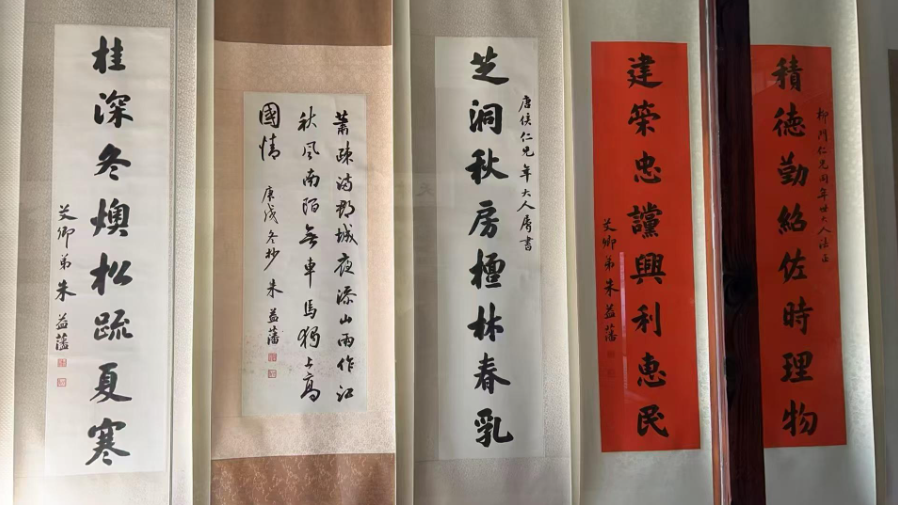 積德勤紹佐時理物
仁兄同年世大人法正
建策忠讜興利惠民
艾卿弟朱益藩
芝洞秋房檀林春乳
唐侯仁兄年大人屬書
蕭疎滿郡城夜添山雨作江
秋風南陌無車馬獨上高
國情
庚戌冬杪 朱益藩
桂深冬燠松疏夏寒
艾卿弟朱益藩